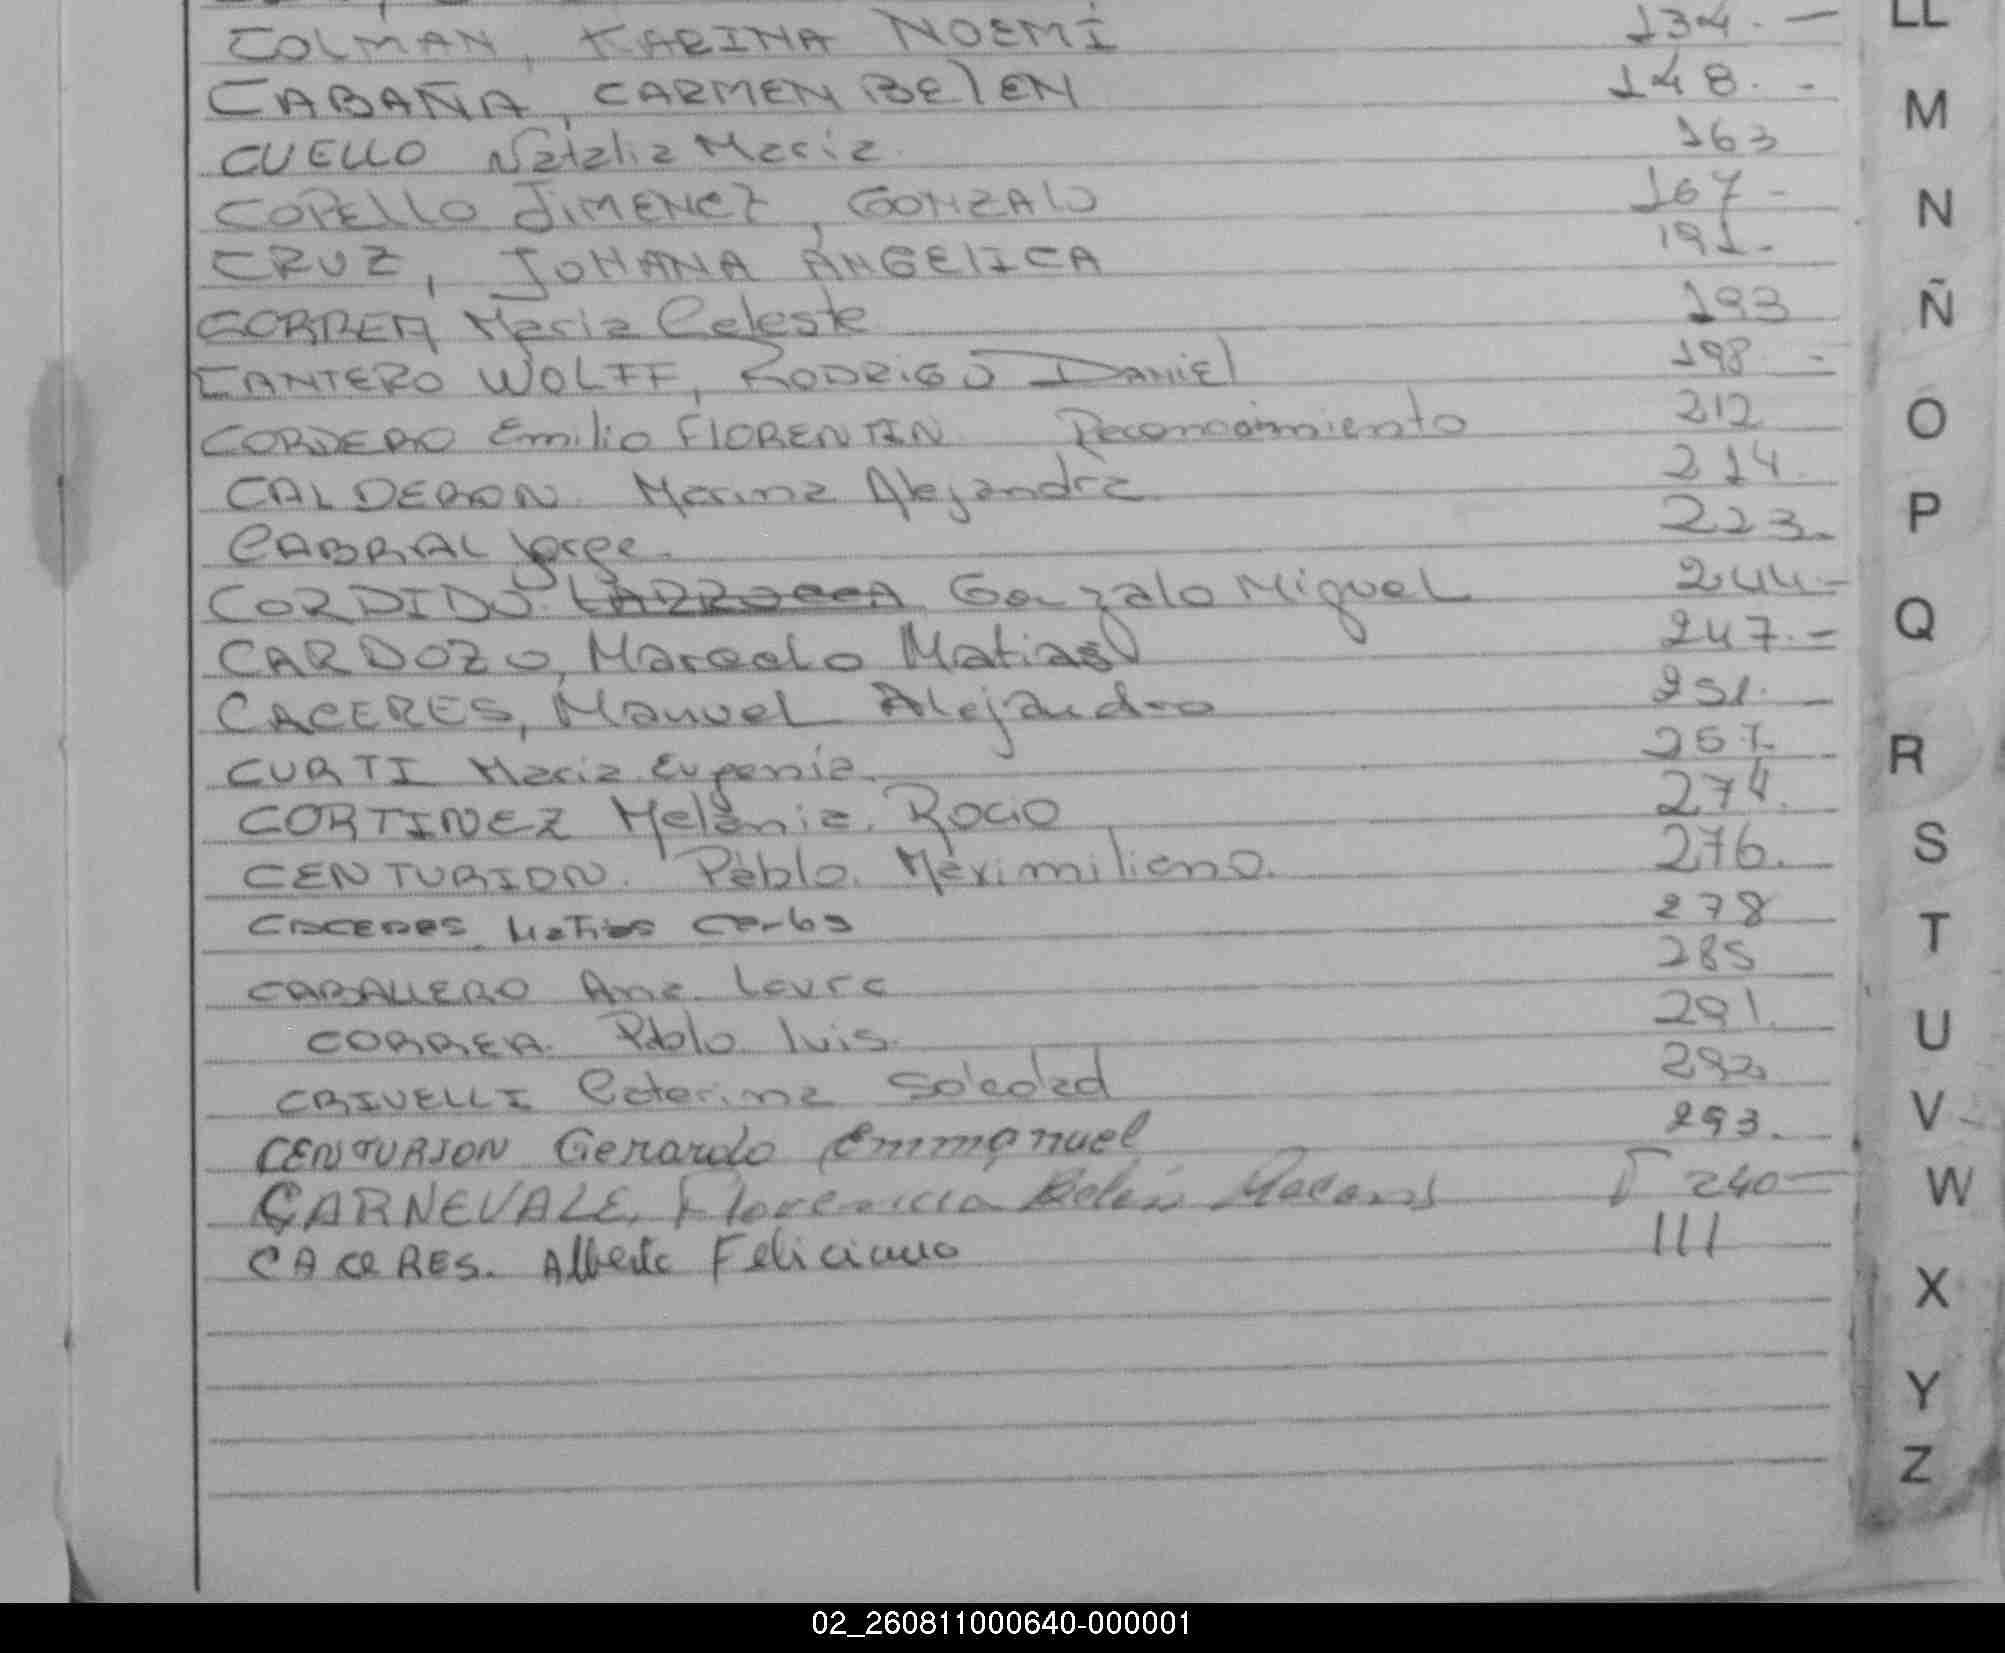 COLMAN, KARINA NOEMÍ 134. —
CABAÑA, CARMEN BELEN 148. -
CUELLO Natalia Maria. 163
COPELLO JIMENEZ, GONZALO 167 -
CRUZ, JOHANA ANGELICA 191. -
CORREA Maria Celeste 193
CANTERO WOLFF, RODRIGO DANIEL 198 -
CORDERO Emilio FLORENTIN Reconocimiento 212
CALDERON. Marina Alejandra 214.
CABRAL Jorge. 223.
CORDIDO. LARROCCA Gonzalo Miguel 244 -
CARDOZO, Marcelo Matias 247. =
CACERES, Manuel Alejandro 251. —
CURTI Maria Eugenia. 267.
CORTINEZ Melania. Rocio 274.
CENTURION. Pablo. Maximiliano. 276.
CACERES Matias Carlos 278
CABALLERO Ana. Laura 285
CORREA. Pablo Luis. 291.
CRIVELLI Caterina Soledad 292
CENTURION Gerardo Emmanuel 293.
CARNEVALE, Florencia Belén 240 —
CACERES. Alberto Feliciano 111
LL
M
N
Ñ
O
P
Q
R
S
T
U
V
W
X
Y
Z
02_260811000640-000001